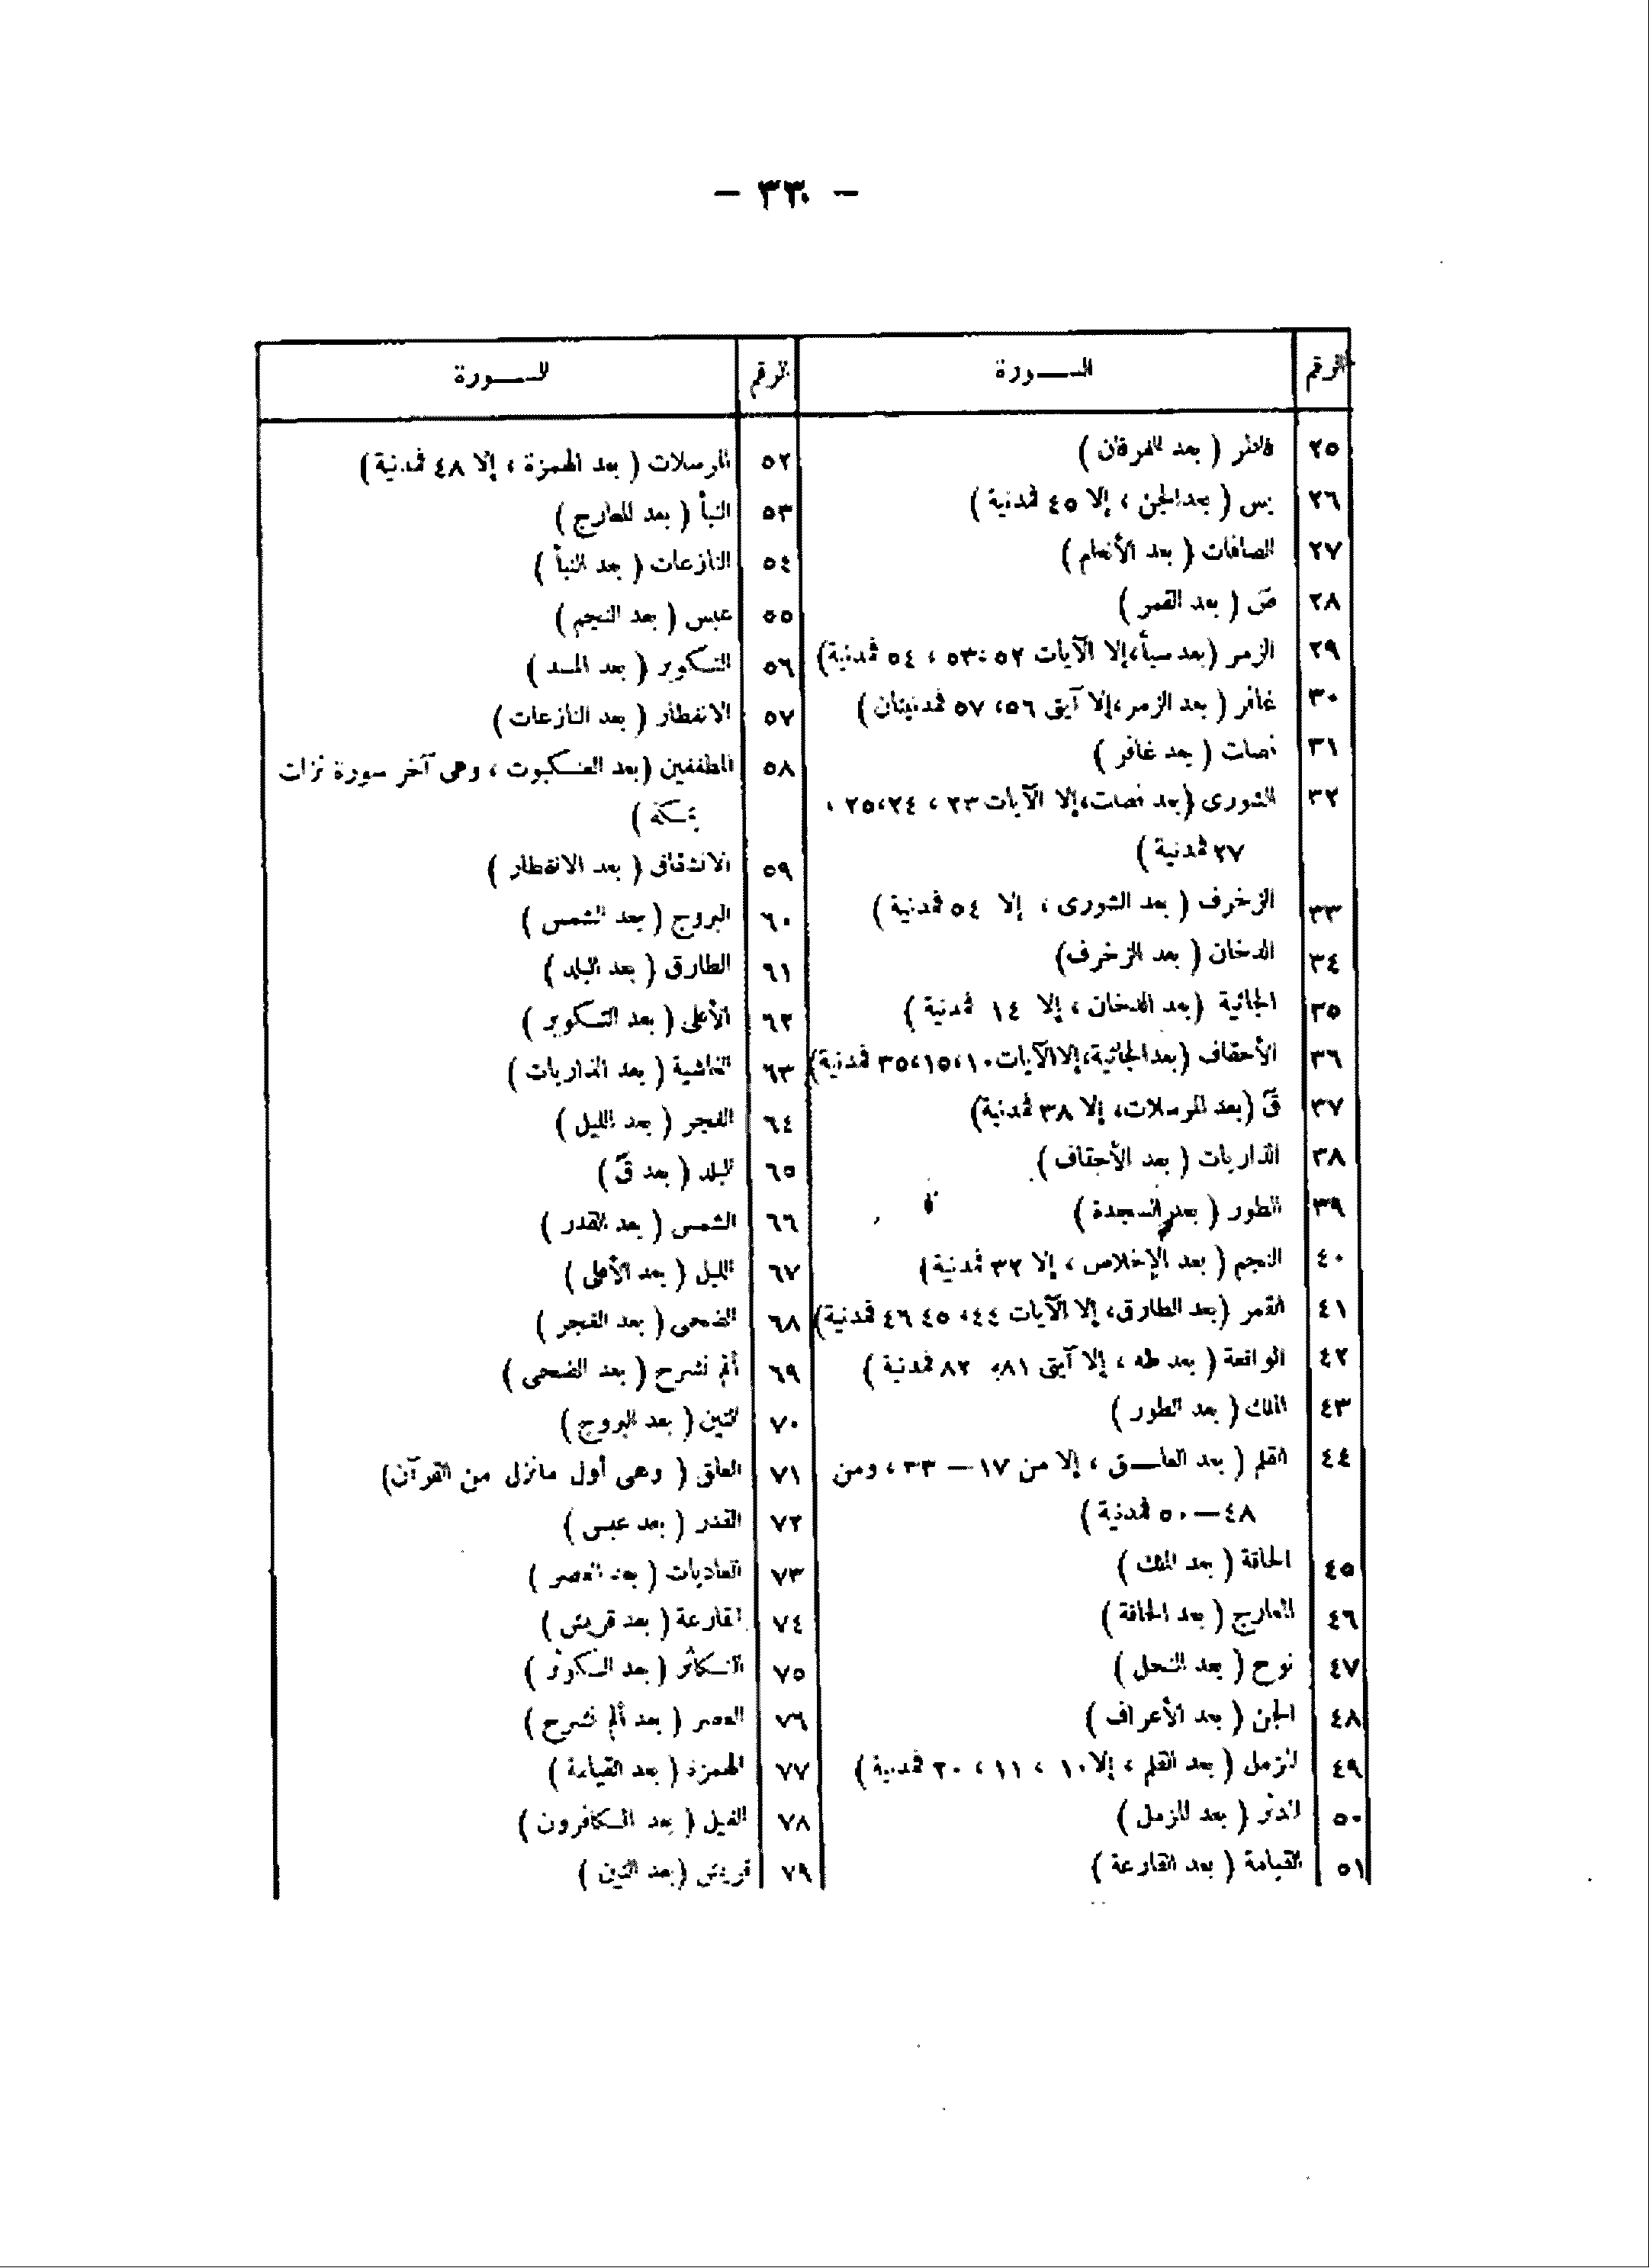 — ٣٣٠ —
الرقم
الســـورة
٢٥ فاطر ( بعد الفرقان )
٢٦ يس ( بعد الجن ، إلا ٤٥ فمدنية )
٢٧ الصافات ( بعد الأنعام )
٢٨ صَ ( بعد القمر )
٢٩ الزمر (بعد سبأ، إلا الآيات ٥٢ ،٥٣ ، ٥٤ فمدنية)
٣٠ غافر ( بعد الزمر ،إلا آيتى ٥٦، ٥٧ فمدنيتان )
٣١ فصلت ( بعد غافر )
٣٢ الشورى (بعد فصلت، إلا الآيات ٢٣ ، ٢٤،٢٥ ،
٢٧ فمدنية )
٣٣ الزخرف ( بعد الشورى ، إلا ٥٤ فمدنية )
٣٤ الدخان ( بعد الزخرف)
٣٥ الجاثية (بعد الدخان ، إلا ١٤ فمدنية )
٣٦ الأحقاف (بعد الجاثية، إلا الآيات ١٠،١٥،٣٥ فمدنية)
٣٧ قَ (بعد المرسلات، إلا ٣٨ فمدنية)
٣٨ الذاريات ( بعد الأحقاف )
٣٩ الطور ( بعد السجدة )
٤٠ النجم ( بعد الإخلاص ، إلا ٣٢ فمدنية )
٤١ القمر (بعد الطارق، إلا الآيات ٤٤، ٤٥ ٤٦ فمدنية)
٤٢ الواقعة ( بعد طه ، إلا آيتى ٨١، ٨٢ فمدنية )
٤٣ الملك ( بعد الطور )
٤٤ القلم ( بعد العلـــق ، إلا من ١٧ — ٣٣ ، ومن
٤٨ — ٥٠ فمدنية )
٤٥ الحاقة ( بعد الملك )
٤٦ المعارج ( بعد الحاقة )
٤٧ نوح ( بعد النحل )
٤٨ الجن ( بعد الأعراف )
٤٩ المزمل ( بعد القلم ، إلا ١٠ ، ١١ ، ٢٠ فمدنية )
٥٠ المدثر ( بعد المزمل )
٥١ القيامة ( بعد القارعة )
الرقم
الســـورة
٥٢ المرسلات ( بعد الهمزة ، إلا ٤٨ فمدنية )
٥٣ النبأ ( بعد المعارج )
٥٤ النازعات ( بعد النبأ )
٥٥ عبس ( بعد النجم )
٥٦ التكوير ( بعد المسد )
٥٧ الانفطار ( بعد النازعات )
٥٨ المطففين (بعد العنكبوت ، وهى آخر سورة نزلت
بمكة )
٥٩ الانشقاق ( بعد الانفطار )
٦٠ البروج ( بعد الشمس )
٦١ الطارق ( بعد البلد )
٦٢ الأعلى ( بعد التكوير )
٦٣ الغاشية ( بعد الذاريات )
٦٤ الفجر ( بعد الليل )
٦٥ البلد ( بعد قَ )
٦٦ الشمس ( بعد القدر )
٦٧ الليل ( بعد الأعلى )
٦٨ الضحى ( بعد الفجر )
٦٩ ألم نشرح ( بعد الضحى )
٧٠ التين ( بعد البروج )
٧١ العلق ( وهى أول مانزل من القرآن)
٧٢ القدر ( بعد عبس )
٧٣ العاديات ( بعد العصر )
٧٤ القارعة ( بعد قريش )
٧٥ التكاثر ( بعد الكوثر )
٧٦ العصر ( بعد ألم نشرح )
٧٧ الهمزة ( بعد القيامة )
٧٨ الفيل ( بعد الكافرون )
٧٩ قريش (بعد التين )